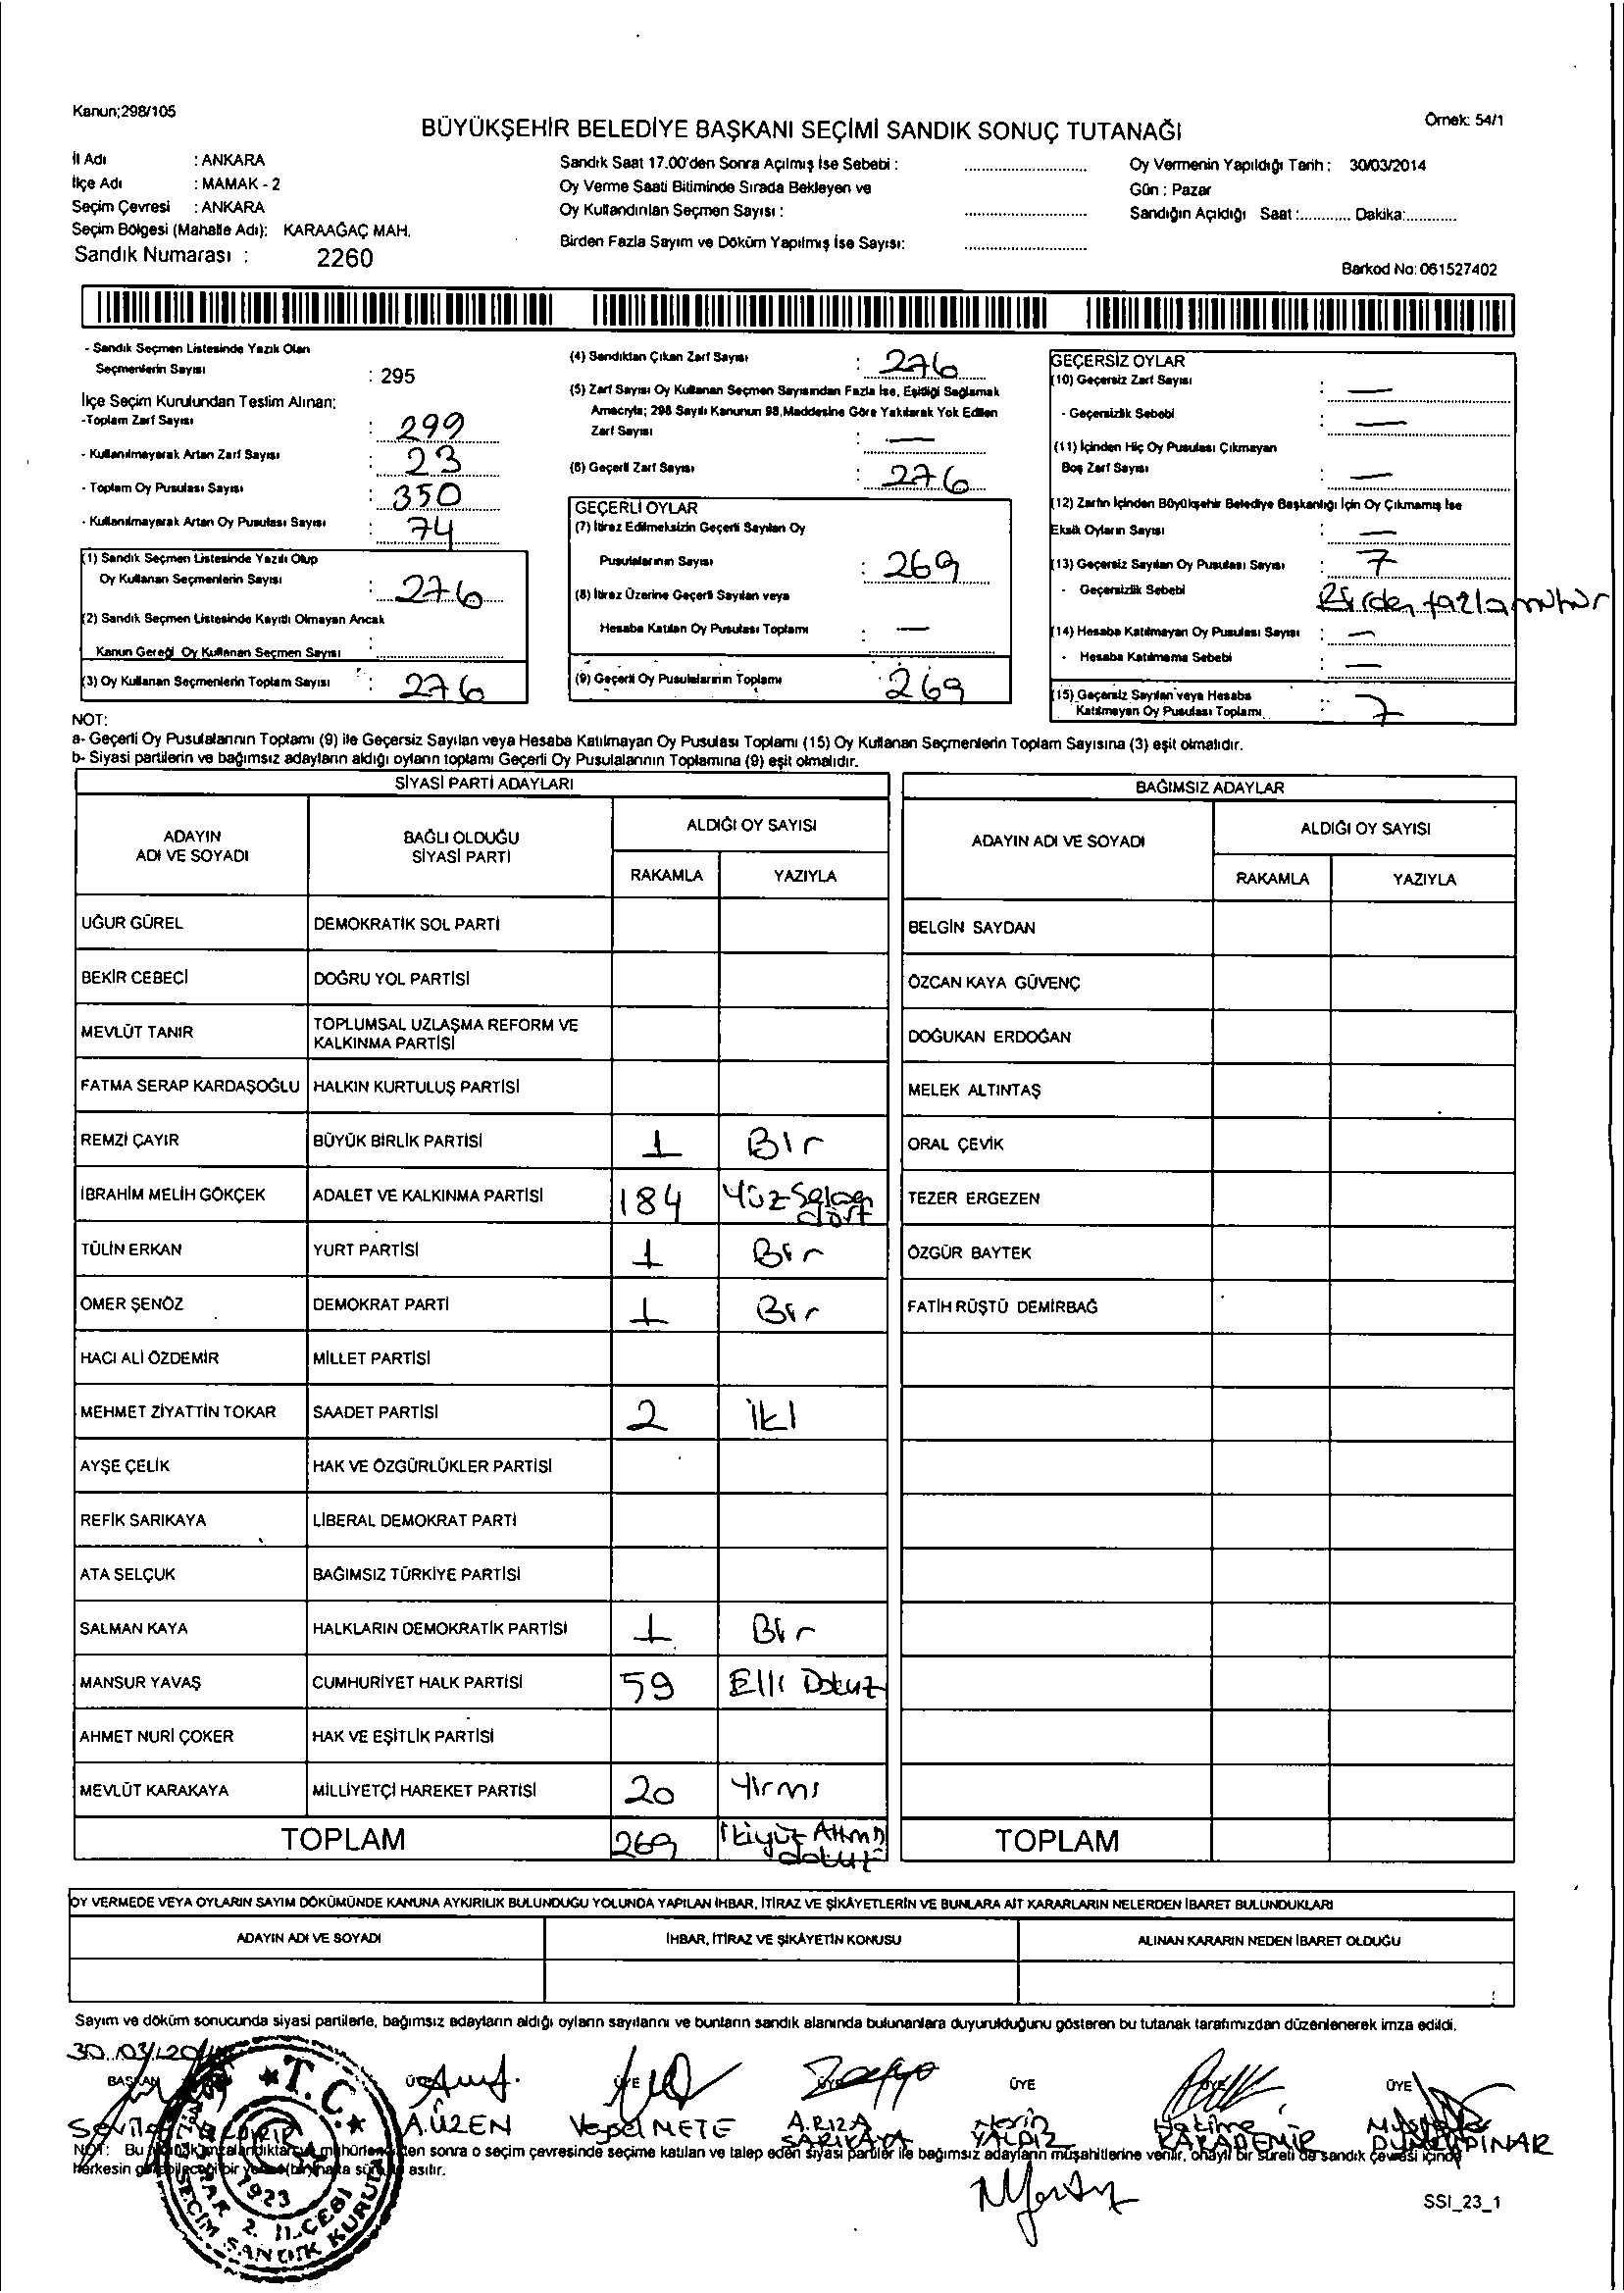 Kanun;298/105
Örnek: 54/1
BÜYÜKŞEHİR BELEDİYE BAŞKANI SEÇİMİ SANDIK SONUÇ TUTANAĞI
İl Adı : ANKARA
İlçe Adı : MAMAK - 2
Seçim Çevresi : ANKARA
Seçim Bölgesi (Mahalle Adı): KARAAĞAÇ MAH.
Sandık Numarası : 2260
Sandık Saat 17.00'den Sonra Açılmış İse Sebebi :
Oy Verme Saati Bitiminde Sırada Bekleyen ve
Oy Kullandırılan Seçmen Sayısı :
Birden Fazla Sayım ve Döküm Yapılmış İse Sayısı:
Oy Vermenin Yapıldığı Tarih : 30/03/2014
Gün : Pazar
Sandığın Açıldığı Saat :............ Dakika:............
Barkod No: 061527402
- Sandık Seçmen Listesinde Yazılı Olan
Seçmenlerin Sayısı : 295
İlçe Seçim Kurulundan Teslim Alınan:
-Toplam Zarf Sayısı : 299
- Kullanılmayarak Artan Zarf Sayısı : 23
- Toplam Oy Pusulası Sayısı : 350
- Kullanılmayarak Artan Oy Pusulası Sayısı : 74
(1) Sandık Seçmen Listesinde Yazılı Olup
Oy Kullanan Seçmenlerin Sayısı : 276
(2) Sandık Seçmen Listesinde Kayıtlı Olmayan Ancak
Kanun Gereği Oy Kullanan Seçmen Sayısı :
(3) Oy Kullanan Seçmenlerin Toplam Sayısı : 276
(4) Sandıktan Çıkan Zarf Sayısı : 276
(5) Zarf Sayısı Oy Kullanan Seçmen Sayısından Fazla İse, Eşitliği Sağlamak
Amacıyla; 298 Sayılı Kanunun 98.Maddesine Göre Yakılarak Yok Edilen
Zarf Sayısı : —
(6) Geçerli Zarf Sayısı : 276
GEÇERLİ OYLAR
(7) İtiraz Edilmeksizin Geçerli Sayılan Oy
Pusulalarının Sayısı : 269
(8) İtiraz Üzerine Geçerli Sayılan veya
Hesaba Katılan Oy Pusulası Toplamı : —
(9) Geçerli Oy Pusulalarının Toplamı : 269
GEÇERSİZ OYLAR
(10) Geçersiz Zarf Sayısı : —
- Geçersizlik Sebebi : —
(11) İçinden Hiç Oy Pusulası Çıkmayan
Boş Zarf Sayısı : —
(12) Zarfın İçinden Büyükşehir Belediye Başkanlığı İçin Oy Çıkmamış İse
Eksik Oyların Sayısı : —
(13) Geçersiz Sayılan Oy Pusulası Sayısı : 7
- Geçersizlik Sebebi Birden fazla mühür
(14) Hesaba Katılmayan Oy Pusulası Sayısı : —
- Hesaba Katılmama Sebebi : —
(15) Geçersiz Sayılan veya Hesaba
Katılmayan Oy Pusulası Toplamı : 7
NOT:
a- Geçerli Oy Pusulalarının Toplamı (9) ile Geçersiz Sayılan veya Hesaba Katılmayan Oy Pusulası Toplamı (15) Oy Kullanan Seçmenlerin Toplam Sayısına (3) eşit olmalıdır.
b- Siyasi partilerin ve bağımsız adayların aldığı oyların toplamı Geçerli Oy Pusulalarının Toplamına (9) eşit olmalıdır.
SİYASİ PARTİ ADAYLARI
ADAYIN ADI VE SOYADI
BAĞLI OLDUĞU SİYASİ PARTİ
ALDIĞI OY SAYISI
RAKAMLA YAZIYLA
UĞUR GÜREL DEMOKRATİK SOL PARTİ
BEKİR CEBECİ DOĞRU YOL PARTİSİ
MEVLÜT TANIR TOPLUMSAL UZLAŞMA REFORM VE KALKINMA PARTİSİ
FATMA SERAP KARDAŞOĞLU HALKIN KURTULUŞ PARTİSİ
REMZİ ÇAYIR BÜYÜK BİRLİK PARTİSİ 1 Bir
İBRAHİM MELİH GÖKÇEK ADALET VE KALKINMA PARTİSİ 184 Yüz Seksen dört
TÜLİN ERKAN YURT PARTİSİ 1 Bir
ÖMER ŞENÖZ DEMOKRAT PARTİ 1 Bir
HACI ALİ ÖZDEMİR MİLLET PARTİSİ
MEHMET ZİYATTİN TOKAR SAADET PARTİSİ 2 iki
AYŞE ÇELİK HAK VE ÖZGÜRLÜKLER PARTİSİ
REFİK SARIKAYA LİBERAL DEMOKRAT PARTİ
ATA SELÇUK BAĞIMSIZ TÜRKİYE PARTİSİ
SALMAN KAYA HALKLARIN DEMOKRATİK PARTİSİ 1 Bir
MANSUR YAVAŞ CUMHURİYET HALK PARTİSİ 59 Elli Dokuz
AHMET NURİ ÇOKER HAK VE EŞİTLİK PARTİSİ
MEVLÜT KARAKAYA MİLLİYETÇİ HAREKET PARTİSİ 20 Yirmi
TOPLAM 269 İkiyüz Altmış dokuz
BAĞIMSIZ ADAYLAR
ADAYIN ADI VE SOYADI
ALDIĞI OY SAYISI
RAKAMLA YAZIYLA
BELGİN SAYDAN
ÖZCAN KAYA GÜVENÇ
DOĞUKAN ERDOĞAN
MELEK ALTINTAŞ
ORAL ÇEVİK
TEZER ERGEZEN
ÖZGÜR BAYTEK
FATİH RÜŞTÜ DEMİRBAĞ
TOPLAM
OY VERMEDE VEYA OYLARIN SAYIM DÖKÜMÜNDE KANUNA AYKIRILIK BULUNDUĞU YOLUNDA YAPILAN İHBAR, İTİRAZ VE ŞİKÂYETLERİN VE BUNLARA AİT KARARLARIN NELERDEN İBARET BULUNDUKLARI
ADAYIN ADI VE SOYADI İHBAR, İTİRAZ VE ŞİKÂYETİN KONUSU ALINAN KARARIN NEDEN İBARET OLDUĞU
Sayım ve döküm sonucunda siyasi partilerle, bağımsız adayların aldığı oyların sayılarını ve bunların sandık alanında bulunanlara duyurulduğunu gösteren bu tutanak tarafımızdan düzenlenerek imza edildi.
30.03.20
BAŞKAN ÜYE ÜYE ÜYE ÜYE ÜYE ÜYE
A.ÜZEN Veysel METE A.RIZA SARIKAYA Nerin YALDIZ Hatime KARADEMİR PINAR
NOT: Bu tutanak imzalandıktan ve mühürlendikten sonra o seçim çevresinde seçime katılan ve talep eden siyasi partiler ile bağımsız adayların müşahitlerine verilir, onaylı bir sureti de sandık çevresi içinde
herkesin görebileceği bir yere (bir) hafta süre asılır.
T.C.
1923
2. İLÇESİ
SEÇİM SANDIK KURULU
SSI_23_1